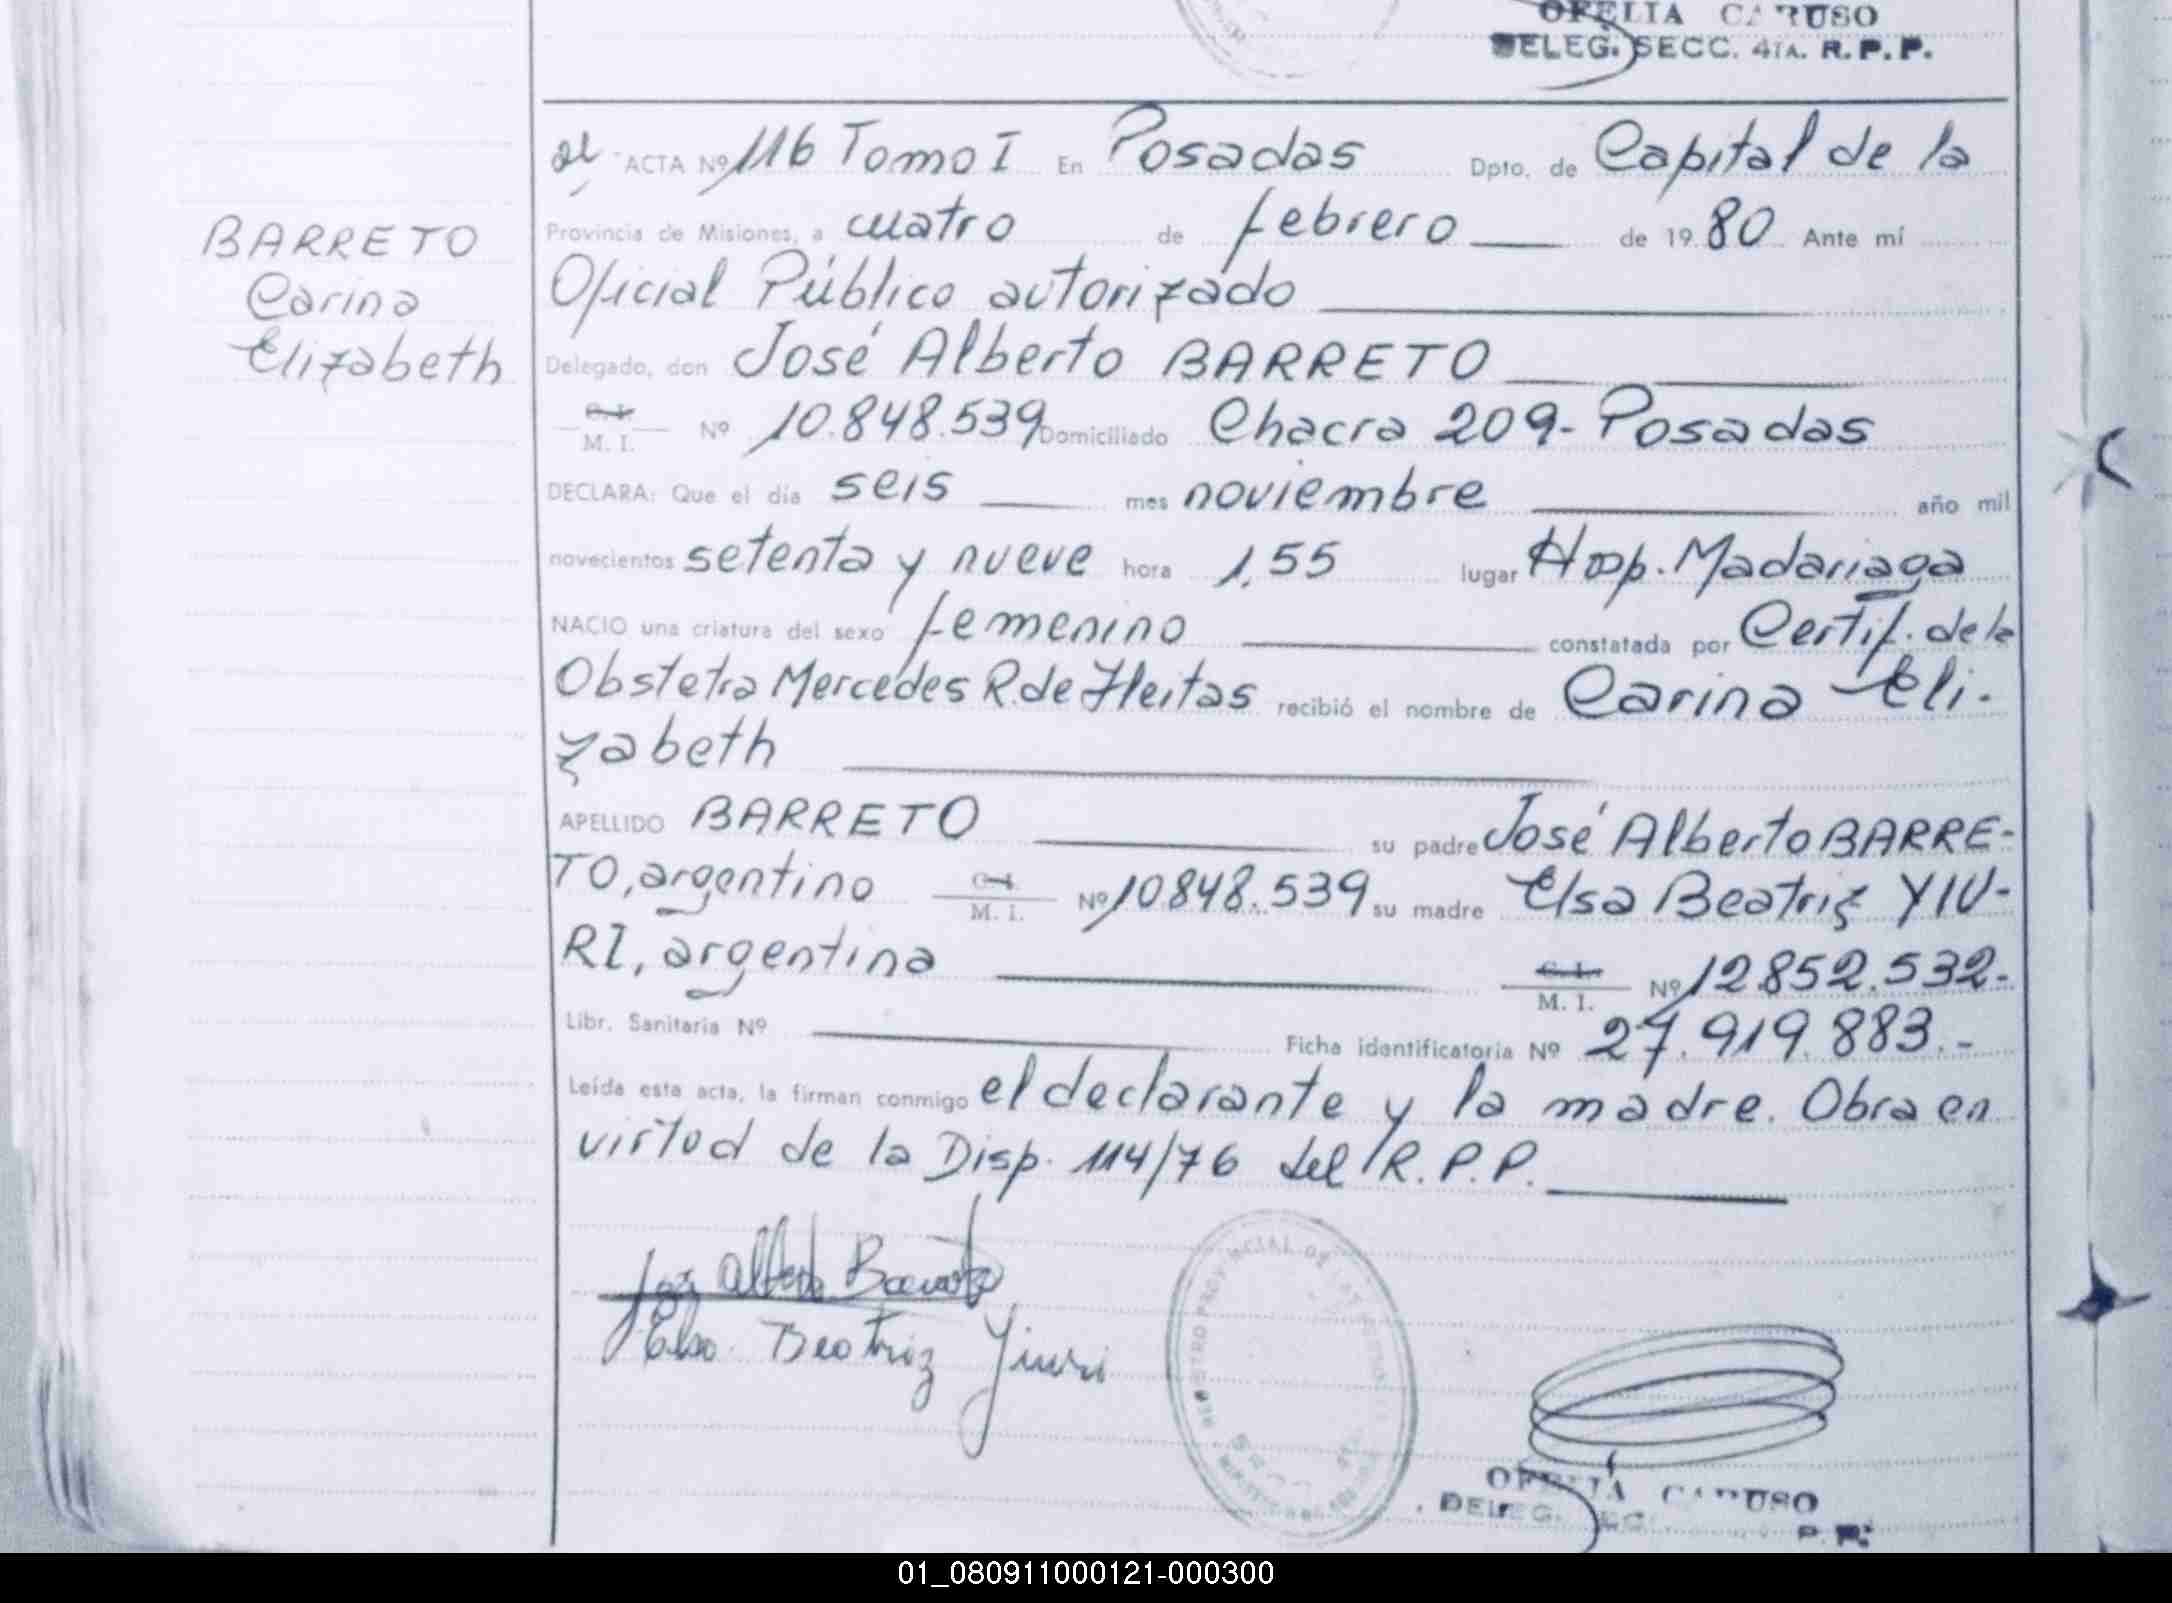 OFELIA CARUSO
DELEG. SECC. 4TA. R.P.P.
ACTA Nº 116 Tomo I En Posadas Dpto. de Capital de la
BARRETO
Carina
Elizabeth
Provincia de Misiones, a cuatro de febrero de 1980 Ante mí
Oficial Público autorizado
Delegado, don José Alberto BARRETO
C. I.
M. I. Nº 10.848.539 Domiciliado Chacra 209 - Posadas
DECLARA: Que el día seis mes noviembre año mil
novecientos setenta y nueve hora 1,55 lugar Hosp. Madariaga
NACIO una criatura del sexo femenino constatada por Certif. de la
Obstetra Mercedes R. de Fleitas recibió el nombre de Carina Eli-
zabeth
APELLIDO BARRETO su padre José Alberto BARRE-
TO, argentino C. I. M. I. Nº 10848.539 su madre Elsa Beatriz YIU-
RI, argentina C. I. M. I. Nº 12852.532-
Libr. Sanitaria Nº Ficha identificatoria Nº 27.919.883.-
Leída esta acta, la firman conmigo el declarante y la madre. Obra en
virtud de la Disp. 114/76 del R.P.P.
José Alberto Barreto
Elsa Beatriz Yiuri
OFELIA CARUSO
DELEG.
01_080911000121-000300